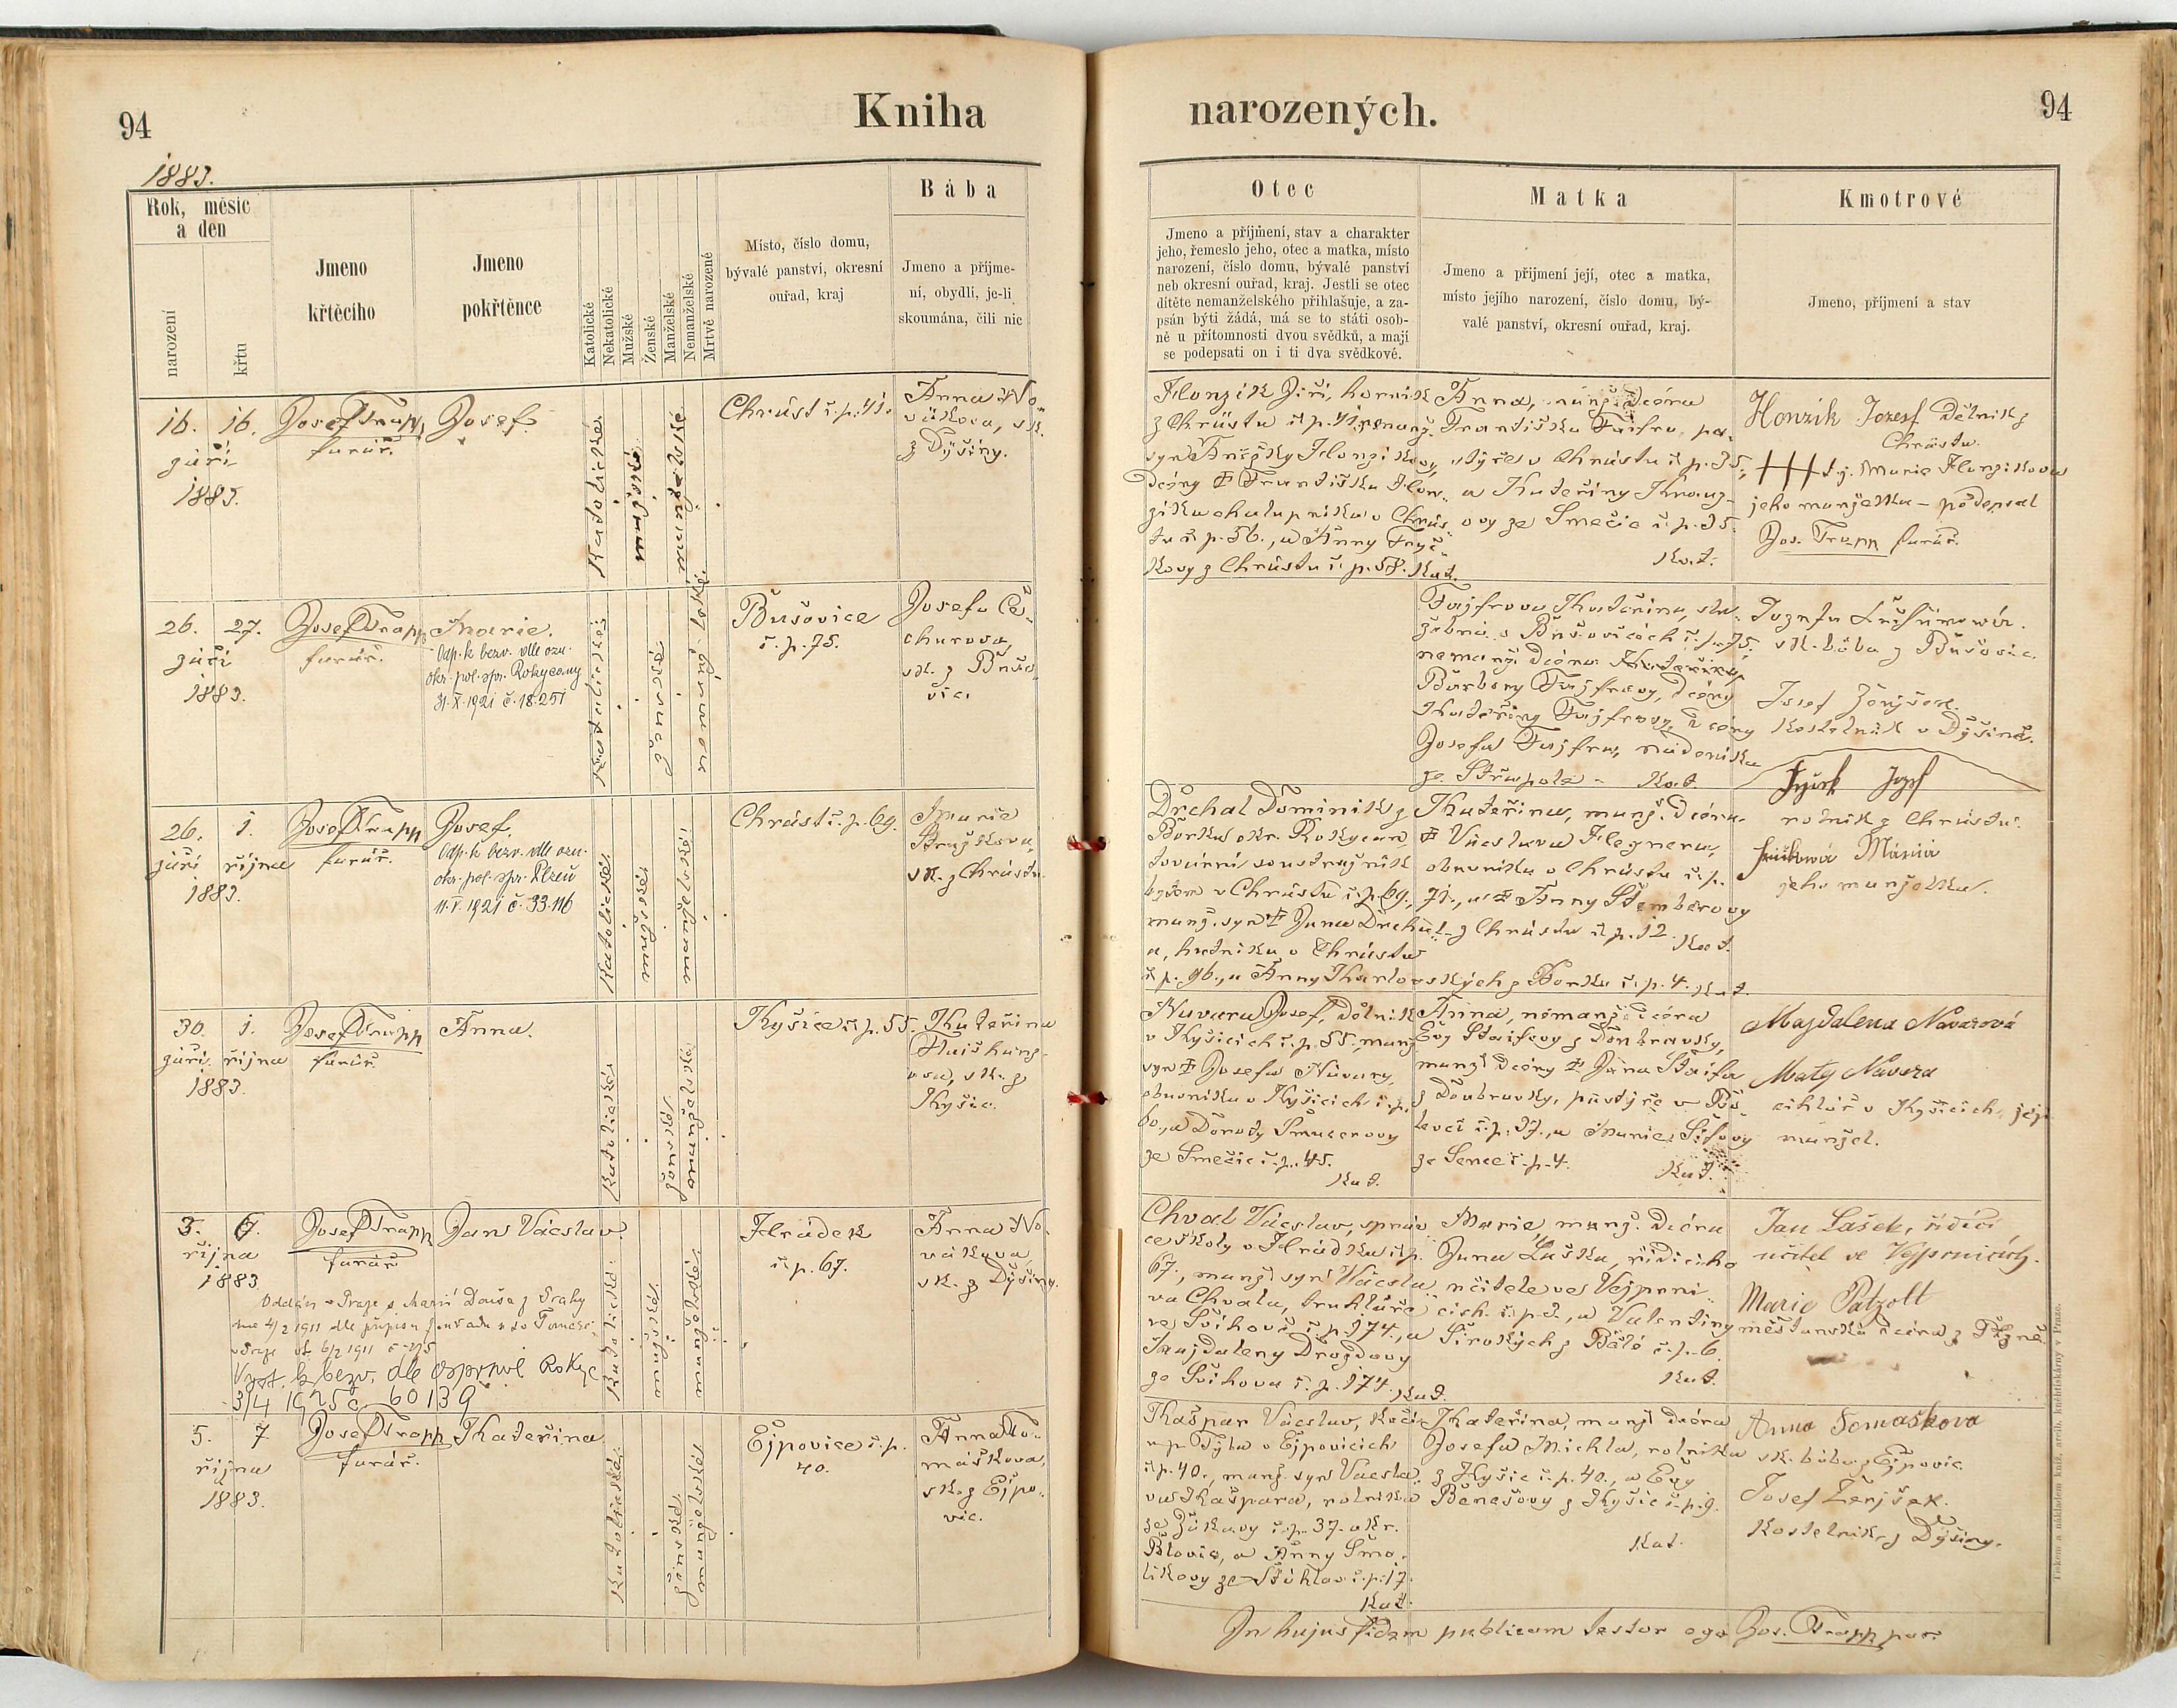 94
Kniha
narozených.
94
1883.
Rok, měsíc
a den
narození
křtu
Jmeno
křtěcího
Jmeno
pokřtěnce
Katolické
Nekatolické
Mužské
Ženské
Manželské
Nemanželské
Mrtvě narozené
Místo, číslo domu,
bývalé panství, okresní
ouřad, kraj
Bába
Jmeno a příjme-
ní, obydlí, je-li
skoumána, čili nic
Otec
Jmeno a příjmení, stav a charakter
jeho, řemeslo jeho, otec a matka, místo
narození, číslo domu, bývalé panství
neb okresní ouřad, kraj. Jestli se otec
dítěte nemanželského přihlašuje, a za-
psán býti žádá, má se to státi osob-
ně u přítomnosti dvou svědků, a mají
se podepsati on i ti dva svědkové.
Matka
Jmeno a přijmení její, otec a matka,
místo jejího narození, číslo domu, bý-
valé panství, okresní ouřad, kraj.
Kmotrové
Jmeno, příjmení a stav
16. 16.
září
1883.
Josef Trapp,
farář.
Josef.
Katolické
mužské
manželské
Chrást č. p. 41.
Anna No-
váková, sk.
z Dýšiny.
Honzík Jiří, horník
z Chrástu č. p. 41, nemanž.
syn Anežky Honzíkovy,
dcery † Františka Hon-
zíka chalupníka v Chrás-
tu č. p. 56., a Anny
kovy z Chrástu č. p. 58. Kat.
Anna, manž. dcera
Františka Fajfra, pa-
stýře v Chrástu č. p. 35.,
a Kateřiny
ovy ze Smečic č. p. 35.
Kat.
Honzík Jozesf dělník z
Chrástu.
+++ t. j. Marie Honzikova
jeho manželka - podepsal
Jos. Trapp farář.
26. 27.
září
1883.
Josef Trapp
farář.
Marie.
Odp. k bezv. dle ozn.
okr. pol. spr. Rokycany
31. X. 1921 č. 18.251
Katolické
ženské
nemanželské
Bušovice
č. p. 75.
Josefa Če-
churova,
sk. z Bušo-
vic.
Fajfrova Kateřina, slu-
žebná v Bušovicích č. p. 75.
nemanž. dcera
Barbory Fajfrovy, dcery
Kateřiny Fajfrovy, dcery
Josefa Fajfra, nádeníka
ze Střapole - Kat.
sk. bába z Bušovic.
Josef Ženýšek.
kostelník v Dýšině.
26. 1.
září října
1883.
Josef Trapp
farář.
Josef.
Odp. k bezv. dle ozn.
okr. pol. spr. Plzeň
11. V. 1921 č. 33.116
Katolické
mužské
manželské
Chrást č. p. 69.
Marie
Bražkova,
sk. z Chrástu.
Drchal Dominik z
Borku okr. Rokycan,
tovární soustružník
bytem v Chrástu č. p. 69.,
manž. syn † Jana Drchal-
a, hutníka v Chrástu
č. p. 96., a Anny Karlovských z Borku č. p. 4. Kat.
Kateřina, manž. dcera
† Václava Hegnera,
obuvníka v Chrástu č. p.
71., a † Anny Štemberovy
z Chrástu č. p. 12. Kat.
Jozef
rolník z Chrástu.
Mariia
jeho manželka.
30. 1.
září. října
1883.
Josef Trapp
farář.
Anna.
Katolické
ženské
manželské
Kyšice č. p. 55.
Kateřina
ova, sk. z
Kyšic.
Navara Josef, dělník
v Kyšicích č. p. 55., manž.
syn † Josefa Navary,
obuvníka v Kyšicích č. p.
60., a Doroty Šmucerovy
ze Smečic č. p. 45.
Kat.
Anna, nemanž. dcera
Evy Štaifovy z Doubravky,
manž. dcery † Jana Štaifa
z Doubravky, pastýře v Bo-
levci č. p. 37., a Marie Šifovy
ze Sence č. p. 4.
Kat.
Magdalena Navarová
Matěj Navara
cihlář v Kyšicích, její
manžel.
3. 7.
října
1883
Josef Trapp
farář
Jan Václav.
Oddán v Praze s Marií Douša z Prahy
dne 4/2 1911 dle přípisu
6/2 1911
Vyst. z bezv. dle ospršpol Rokyc
3/4 1925 č. 60139
Katolické
mužské
manželské
Hrádek
č. p. 67.
Anna No-
váková
sk. z Dýšiny.
Chval Václav, správ-
ce školy v Hrádku č. p.
67., manž. syn Václa-
va Chvala, truhláře
ve Švihově č. p. 174., a
Magdaleny Drozdovy
ze Švihova č. p. 174. Kat.
Marie, manž. dcera
Jana Laška, řídícího
učitele ve Vejprni-
cích č. p. 2., a Valentiny
Širokých z Bělé č. p. 6.
Kat.
Jan Lašek, řídící
učitel ve Vejprnicích.
Marie Patzolt
měšťanská dcera z Plzně.
5. 7
října
1883.
Josef Trapp
farář.
Kateřina
Katolické
ženské
manželské
Ejpovice č. p.
40.
Anna To-
mášková,
sk. z Ejpo-
vic.
Kašpar Václav, kočí
u p. Týla v Ejpovicích
č. p. 40., manž. syn Václa-
va Kašpara, rolníka
ze Žákavy č. p. 37. okr.
Blovic, a Anny Smo-
likovy ze Štáhlav č. p. 17.
Kat.
Kateřina, manž. dcera
Josefa Michla, rolníka
z Kyšic č. p. 40., a Evy
Benešovy z Kyšic č. p. 9.
Kat.
Anna Tomaškova
sk. bába z Ejpovic
Josef Ženjšek.
Kostelník z Dýšiny.
In hujus fidem publicam testor ego Jos. Trapp par.
Tiskem a nákladem kníž. arcib. knihtiskárny v Praze.